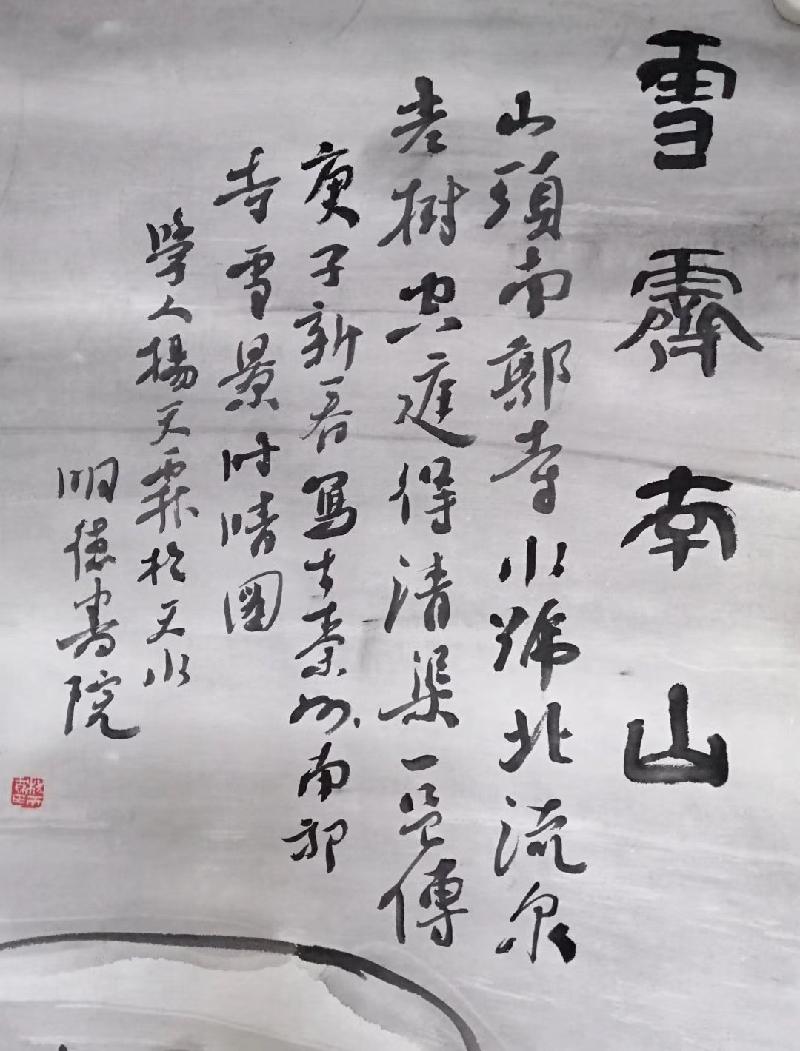 雪霽南山
山頭南郭寺水號北流泉
老樹空庭得清渠一邑傳
庚子新春寫古秦州南郭
寺雪景时晴圖
學人楊天霖於天水
明德書院